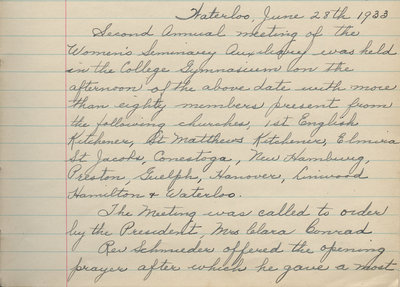 Waterloo, June 28th 1933
Second Annual meeting of the
Women's Seminary Auxiliary was held
in the College Gymnasium on the
afternoon of the above date with more
than eighty members present from
the following churches, 1st English
Kitchener, St Matthews Kitchener, Elmira
St Jacobs, Conestoga, New Hamburg,
Preston, Guelph, Hanover, Linwood
Hamilton & Waterloo.
The Meeting was called to order
by the President, Mrs Clara Conrad
Rev Schmieder offered the opening
prayer after which he gave a most